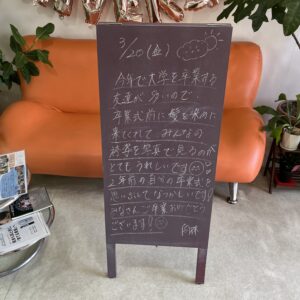 3/20(金)
今年で大学を卒業する
友達が多いので
卒業式前に髪を染めに
来てくれて、みんなの
袴姿を写真で見るのが
とてもうれしいです
2年前の自分の卒業式を
思い出してなつかしいです!
みなさんご卒業おめでとう
ございます!